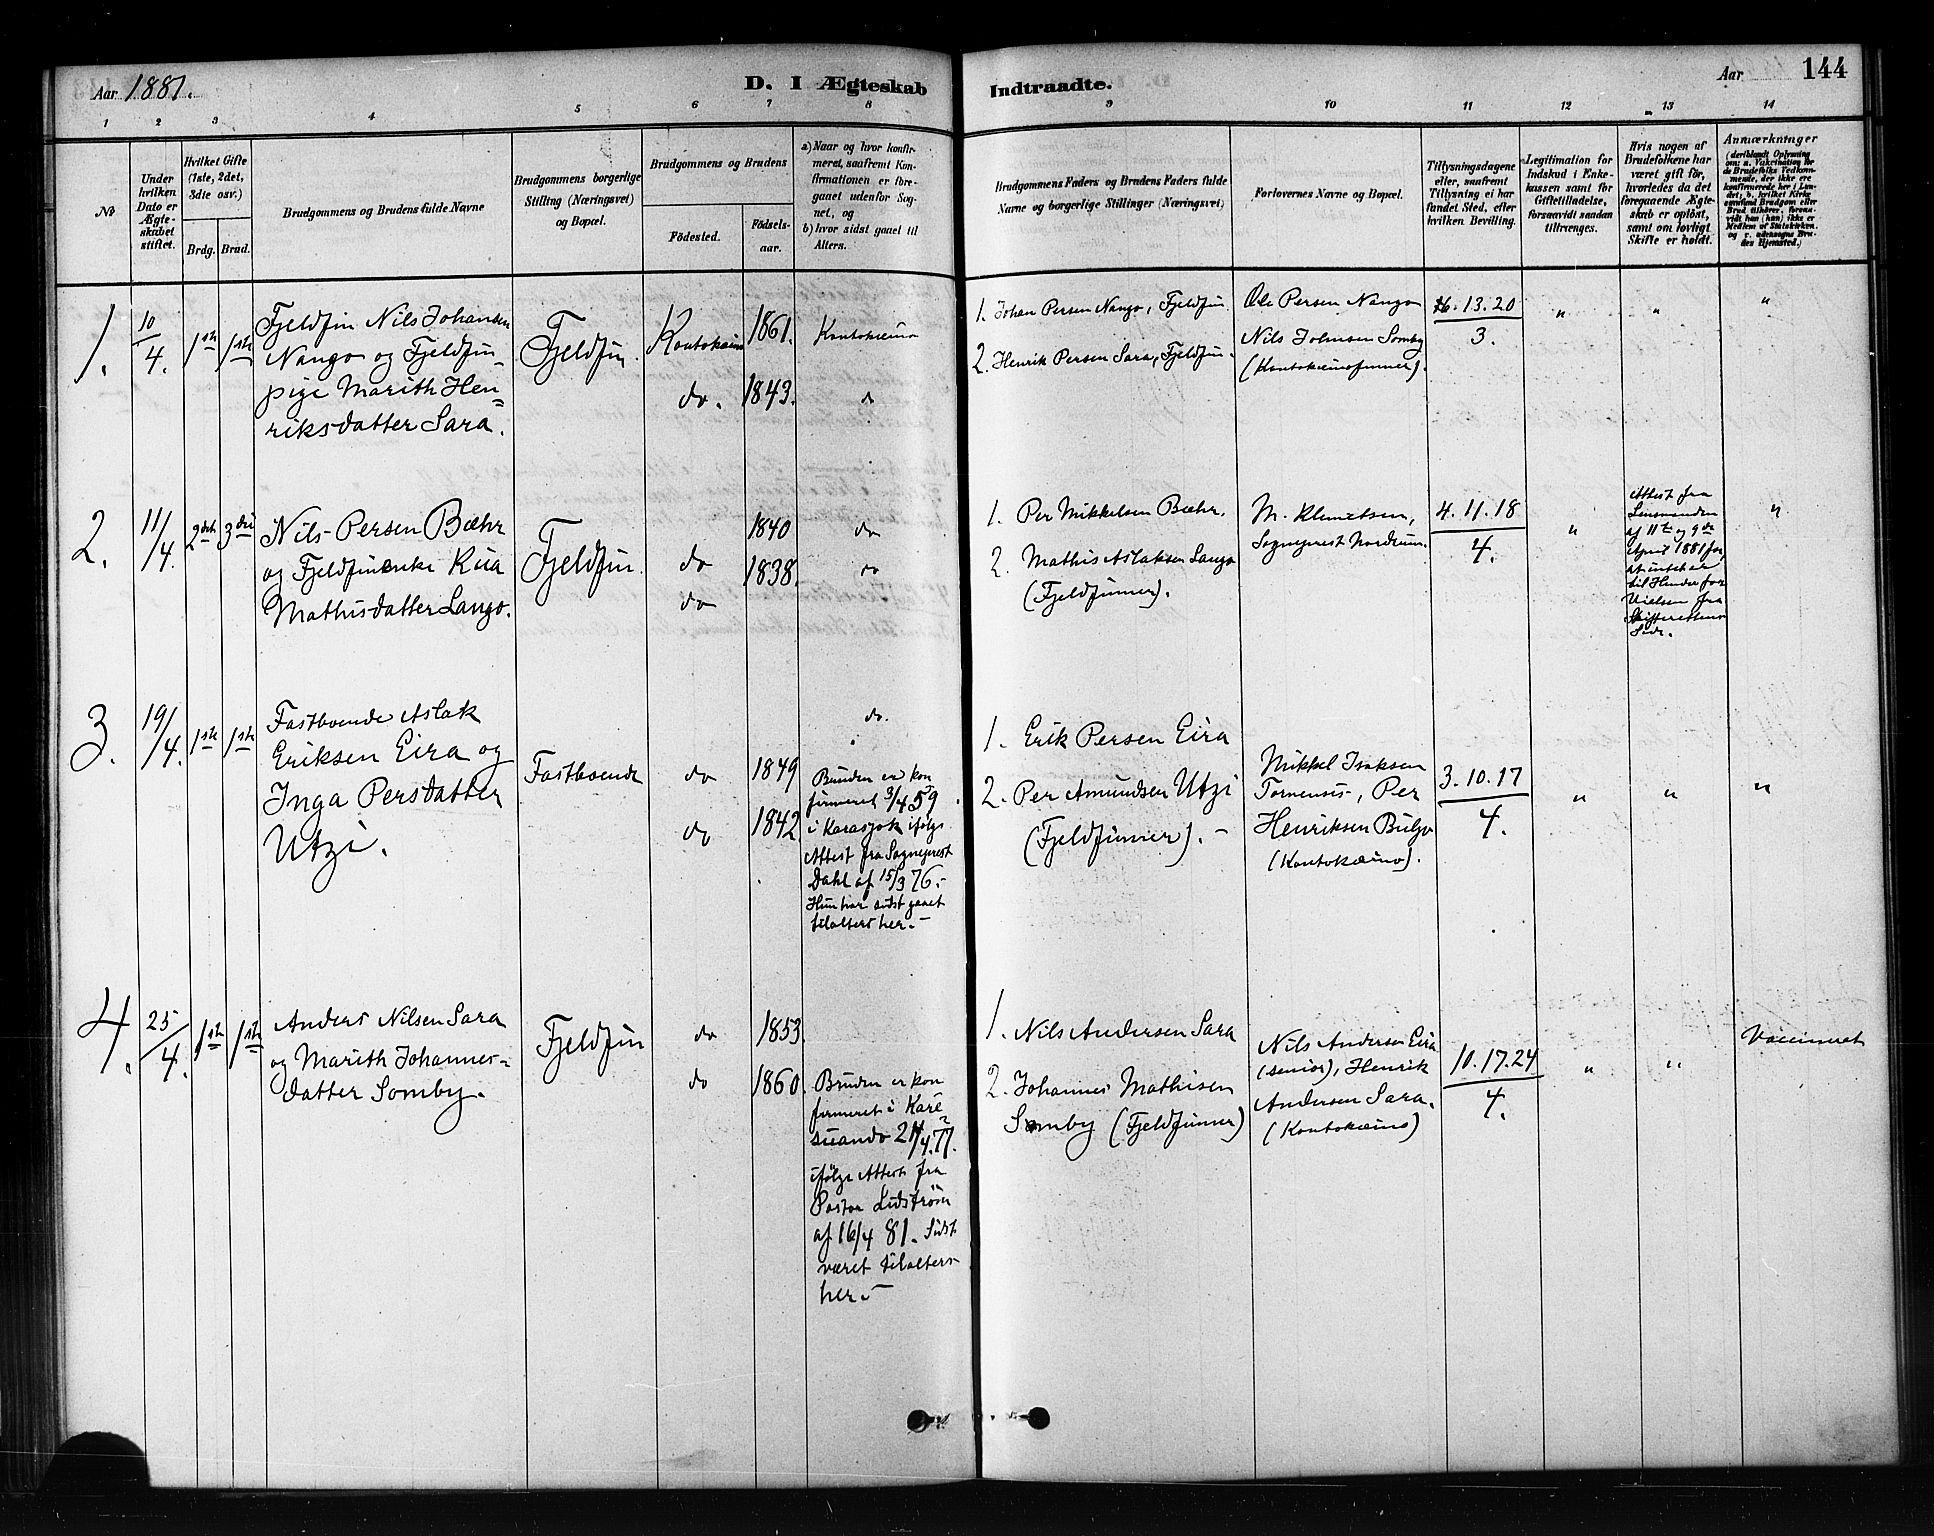 Aar 1881.
D. I Ægteskab Indtraadte.
Aar
144
1 2 3 4 5 6 7 8 9 10 11 12 13 14
No
Under
hvilken
Dato er
Ægte-
skabet
stiftet.
Hvilket Gifte
(1ste, 2det,
3die osv.)
Brdg. Brud.
Brudgommens og Brudens fulde Navne
Brudgommens borgerlige
Stilling (Næringsvei)
og Bopæl.
Brudgommens og Brudens
Fødested.
Fødsels-
aar.
a) Naar og hvor konfir-
meret, saafremt Kon-
firmationen er fore-
gaaet udenfor Sog-
net, og
b) hvor sidst gaaet til
Alters.
Brudgommens Faders og Brudens Faders fulde
Navne og borgerlige Stillinger (Næringsvei)
Forlovernes Navne og Bopæl.
Tillysningsdagene
eller, saafremt
Tillysning ei har
fundet Sted, efter
hvilken Bevilling.
Legitimation for
Indskud i Enke-
kassen samt for
Giftetilladelse,
forsaavidt saadan
tiltrænges.
Hvis nogen af
Brudefolkene har
været gift før,
hvorledes da det
foregaaende Ægte-
skab er opløst,
samt om lovligt
Skifte er holdt.
Anmærkninger
(deriblandt Oplysning
om: a. Vakcination for
de Brudefolks Vedkom-
mende, der ikke ere
konfirmerede her i Lan-
det; b. hvilket Kirke
samfund Brudgom eller
Brud tilhører, forsaa-
vidt han (hun) ikke er
Medlem af Statskirken,
og c. udensogns Bru-
des Hjemsted.)
1.
10/4.
1ste 1ste
Fjeldfin Nils Johansen
Nango og Fjeldfin-
pige Marith Hen-
riksdatter Sara.
Fjeldfin.
Koutokeino
do.
1861.
1843.
Koutokeino
do
1. Johan Persen Nango, Fjeldfin.
2. Henrik Persen Sara, Fjeldfin.
Ole Persen Nango
Nils Johnsen Somby
(Koutokeinofinner).
6. 13. 20
3.
" " "
2.
11/4.
2det 3die
Nils Persen Bæhr
og Fjeldfinenke Risa
Mathisdatter Lango.
Fjeldfin.
do
do
1840
1838.
do
do
1. Per Mikkelsen Bæhr.
2. Mathis Aslaksen Lango
(Fjeldfinner).
M. Klemetsen,
Sognepræst Nordrum.
4. 11. 18
4.
"
Attest fra
Lensmanden
af 11te og 9de
April 1881 for
at intet er
til Hinder for
Vielsen fra
Skifterettens
Side.
"
3.
19/4.
1ste 1ste
Fastboende Aslak
Eriksen Eira og
Inga Persdatter
Utzi.
Fastboende
do
do
1849
1842
do.
Bruden er kon
firmeret 3/4 59
i Karasjok ifølge
Attest fra Sognepræst
Dahl af 15/3 76.-
Hun har sidst gaaet
til alters her.-
1. Erik Persen Eira
2. Per Amundsen Utzi
(Fjeldfinner).-
Mikkel Isaksen
Tornensis, Per
Henriksen Buljo
(Koutokeino).
3. 10. 17
4.
" " "
4.
25/4.
1ste 1ste
Anders Nilsen Sara
og Marith Johannes-
datter Somby.
Fjeldfin
do
do
1853
1860.
Bruden er kon
firmeret i Kare
suando 24/4 77.
ifølge Attest fra
Pastor Lidström
af 16/4 81. Sidst
været til alters
her.-
1. Nils Andersen Sara
2. Johannes Mathisen
Somby (Fjeldfinner)
Nils Andersen Eira
(senior), Henrik
Andersen Sara.
(Koutokeino)
10. 17. 24
4.
" "
Vaccineret